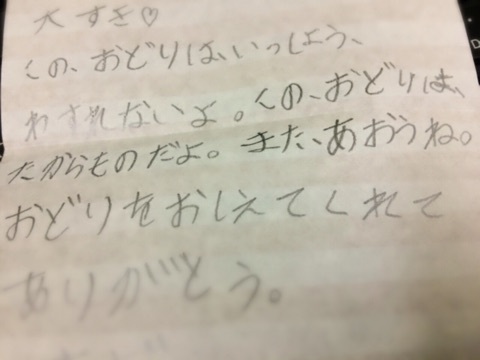 大すき♡
この、おどりは、いっしょう、
わすれないよ。この、おどりは、
たからものだよ。また、あおうね。
おどりをおしえてくれて
ありがとう。